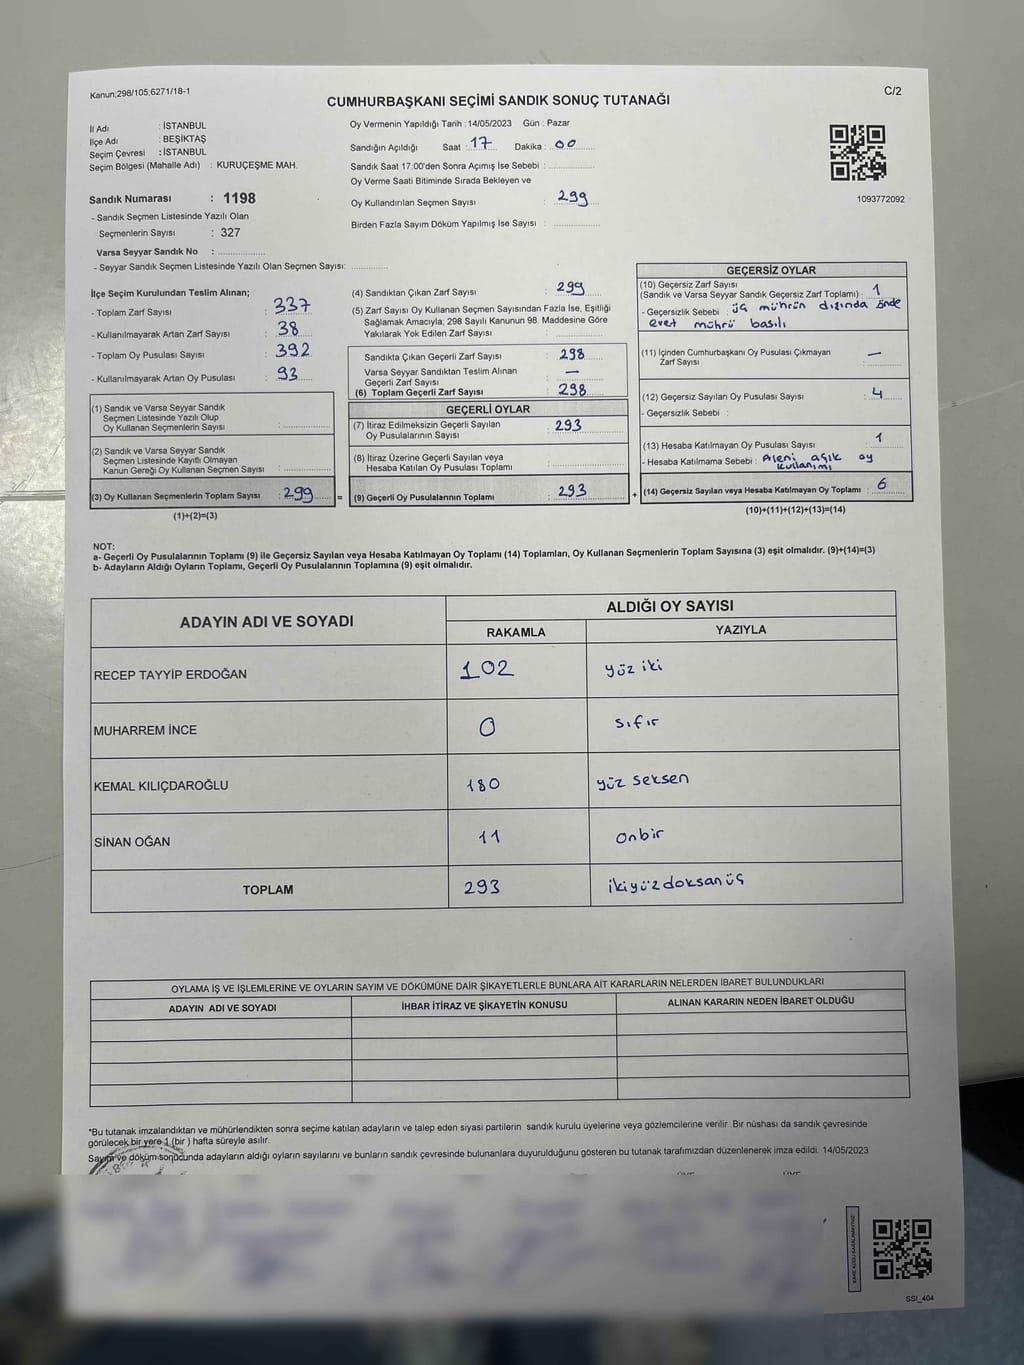 Kanun;298/105;6271/18-1
C/2
CUMHURBAŞKANI SEÇİMİ SANDIK SONUÇ TUTANAĞI
İl Adı : İSTANBUL
İlçe Adı : BEŞİKTAŞ
Seçim Çevresi : İSTANBUL
Seçim Bölgesi (Mahalle Adı) : KURUÇEŞME MAH.
Sandık Numarası : 1198
- Sandık Seçmen Listesinde Yazılı Olan
Seçmenlerin Sayısı : 327
Varsa Seyyar Sandık No :
- Seyyar Sandık Seçmen Listesinde Yazılı Olan Seçmen Sayısı:
Oy Vermenin Yapıldığı Tarih : 14/05/2023 Gün : Pazar
Sandığın Açıldığı Saat : 17 Dakika : 00
Sandık Saat 17:00'den Sonra Açımış İse Sebebi :
Oy Verme Saati Bitiminde Sırada Bekleyen ve
Oy Kullandırılan Seçmen Sayısı : 299
Birden Fazla Sayım Döküm Yapılmış İse Sayısı :
1093772092
İlçe Seçim Kurulundan Teslim Alınan;
- Toplam Zarf Sayısı : 337
- Kullanılmayarak Artan Zarf Sayısı : 38
- Toplam Oy Pusulası Sayısı : 392
- Kullanılmayarak Artan Oy Pusulası : 93
(1) Sandık ve Varsa Seyyar Sandık
Seçmen Listesinde Yazılı Olup
Oy Kullanan Seçmenlerin Sayısı :
(2) Sandık ve Varsa Seyyar Sandık
Seçmen Listesinde Kayıtlı Olmayan
Kanun Gereği Oy Kullanan Seçmen Sayısı :
(3) Oy Kullanan Seçmenlerin Toplam Sayısı : 299 =
(1)+(2)=(3)
(4) Sandıktan Çıkan Zarf Sayısı : 299
(5) Zarf Sayısı Oy Kullanan Seçmen Sayısından Fazla İse, Eşitliği
Sağlamak Amacıyla; 298 Sayılı Kanunun 98. Maddesine Göre
Yakılarak Yok Edilen Zarf Sayısı :
Sandıkta Çıkan Geçerli Zarf Sayısı : 298
Varsa Seyyar Sandıktan Teslim Alınan
Geçerli Zarf Sayısı : —
(6) Toplam Geçerli Zarf Sayısı : 298
GEÇERLİ OYLAR
(7) İtiraz Edilmeksizin Geçerli Sayılan
Oy Pusulalarının Sayısı : 293
(8) İtiraz Üzerine Geçerli Sayılan veya
Hesaba Katılan Oy Pusulası Toplamı :
(9) Geçerli Oy Pusulalarının Toplamı : 293 +
GEÇERSİZ OYLAR
(10) Geçersiz Zarf Sayısı
(Sandık ve Varsa Seyyar Sandık Geçersiz Zarf Toplamı) : 1
- Geçersizlik Sebebi : üç mührün dışında önde
evet mührü basılı
(11) İçinden Cumhurbaşkanı Oy Pusulası Çıkmayan
Zarf Sayısı : —
(12) Geçersiz Sayılan Oy Pusulası Sayısı : 4
- Geçersizlik Sebebi :
(13) Hesaba Katılmayan Oy Pusulası Sayısı : 1
- Hesaba Katılmama Sebebi : Aleni açık oy
kullanımı
(14) Geçersiz Sayılan veya Hesaba Katılmayan Oy Toplamı : 6
(10)+(11)+(12)+(13)=(14)
NOT:
a- Geçerli Oy Pusulalarının Toplamı (9) ile Geçersiz Sayılan veya Hesaba Katılmayan Oy Toplamı (14) Toplamları, Oy Kullanan Seçmenlerin Toplam Sayısına (3) eşit olmalıdır. (9)+(14)=(3)
b- Adayların Aldığı Oyların Toplamı, Geçerli Oy Pusulalarının Toplamına (9) eşit olmalıdır.
ADAYIN ADI VE SOYADI
ALDIĞI OY SAYISI
RAKAMLA YAZIYLA
RECEP TAYYİP ERDOĞAN 102 yüz iki
MUHARREM İNCE 0 sıfır
KEMAL KILIÇDAROĞLU 180 yüz seksen
SİNAN OĞAN 11 onbir
TOPLAM 293 ikiyüzdoksanüç
OYLAMA İŞ VE İŞLEMLERİNE VE OYLARIN SAYIM VE DÖKÜMÜNE DAİR ŞİKAYETLERLE BUNLARA AİT KARARLARIN NELERDEN İBARET BULUNDUKLARI
ADAYIN ADI VE SOYADI İHBAR İTİRAZ VE ŞİKAYETİN KONUSU ALINAN KARARIN NEDEN İBARET OLDUĞU
*Bu tutanak imzalandıktan ve mühürlendikten sonra seçime katılan adayların ve talep eden siyasi partilerin sandık kurulu üyelerine veya gözlemcilerine verilir. Bir nüshası da sandık çevresinde
görülecek bir yere 1 (bir ) hafta süreyle asılır.
Sayım ve döküm sonucunda adayların aldığı oyların sayılarını ve bunların sandık çevresinde bulunanlara duyurulduğunu gösteren bu tutanak tarafımızdan düzenlenerek imza edildi. 14/05/2023
SSİ_404